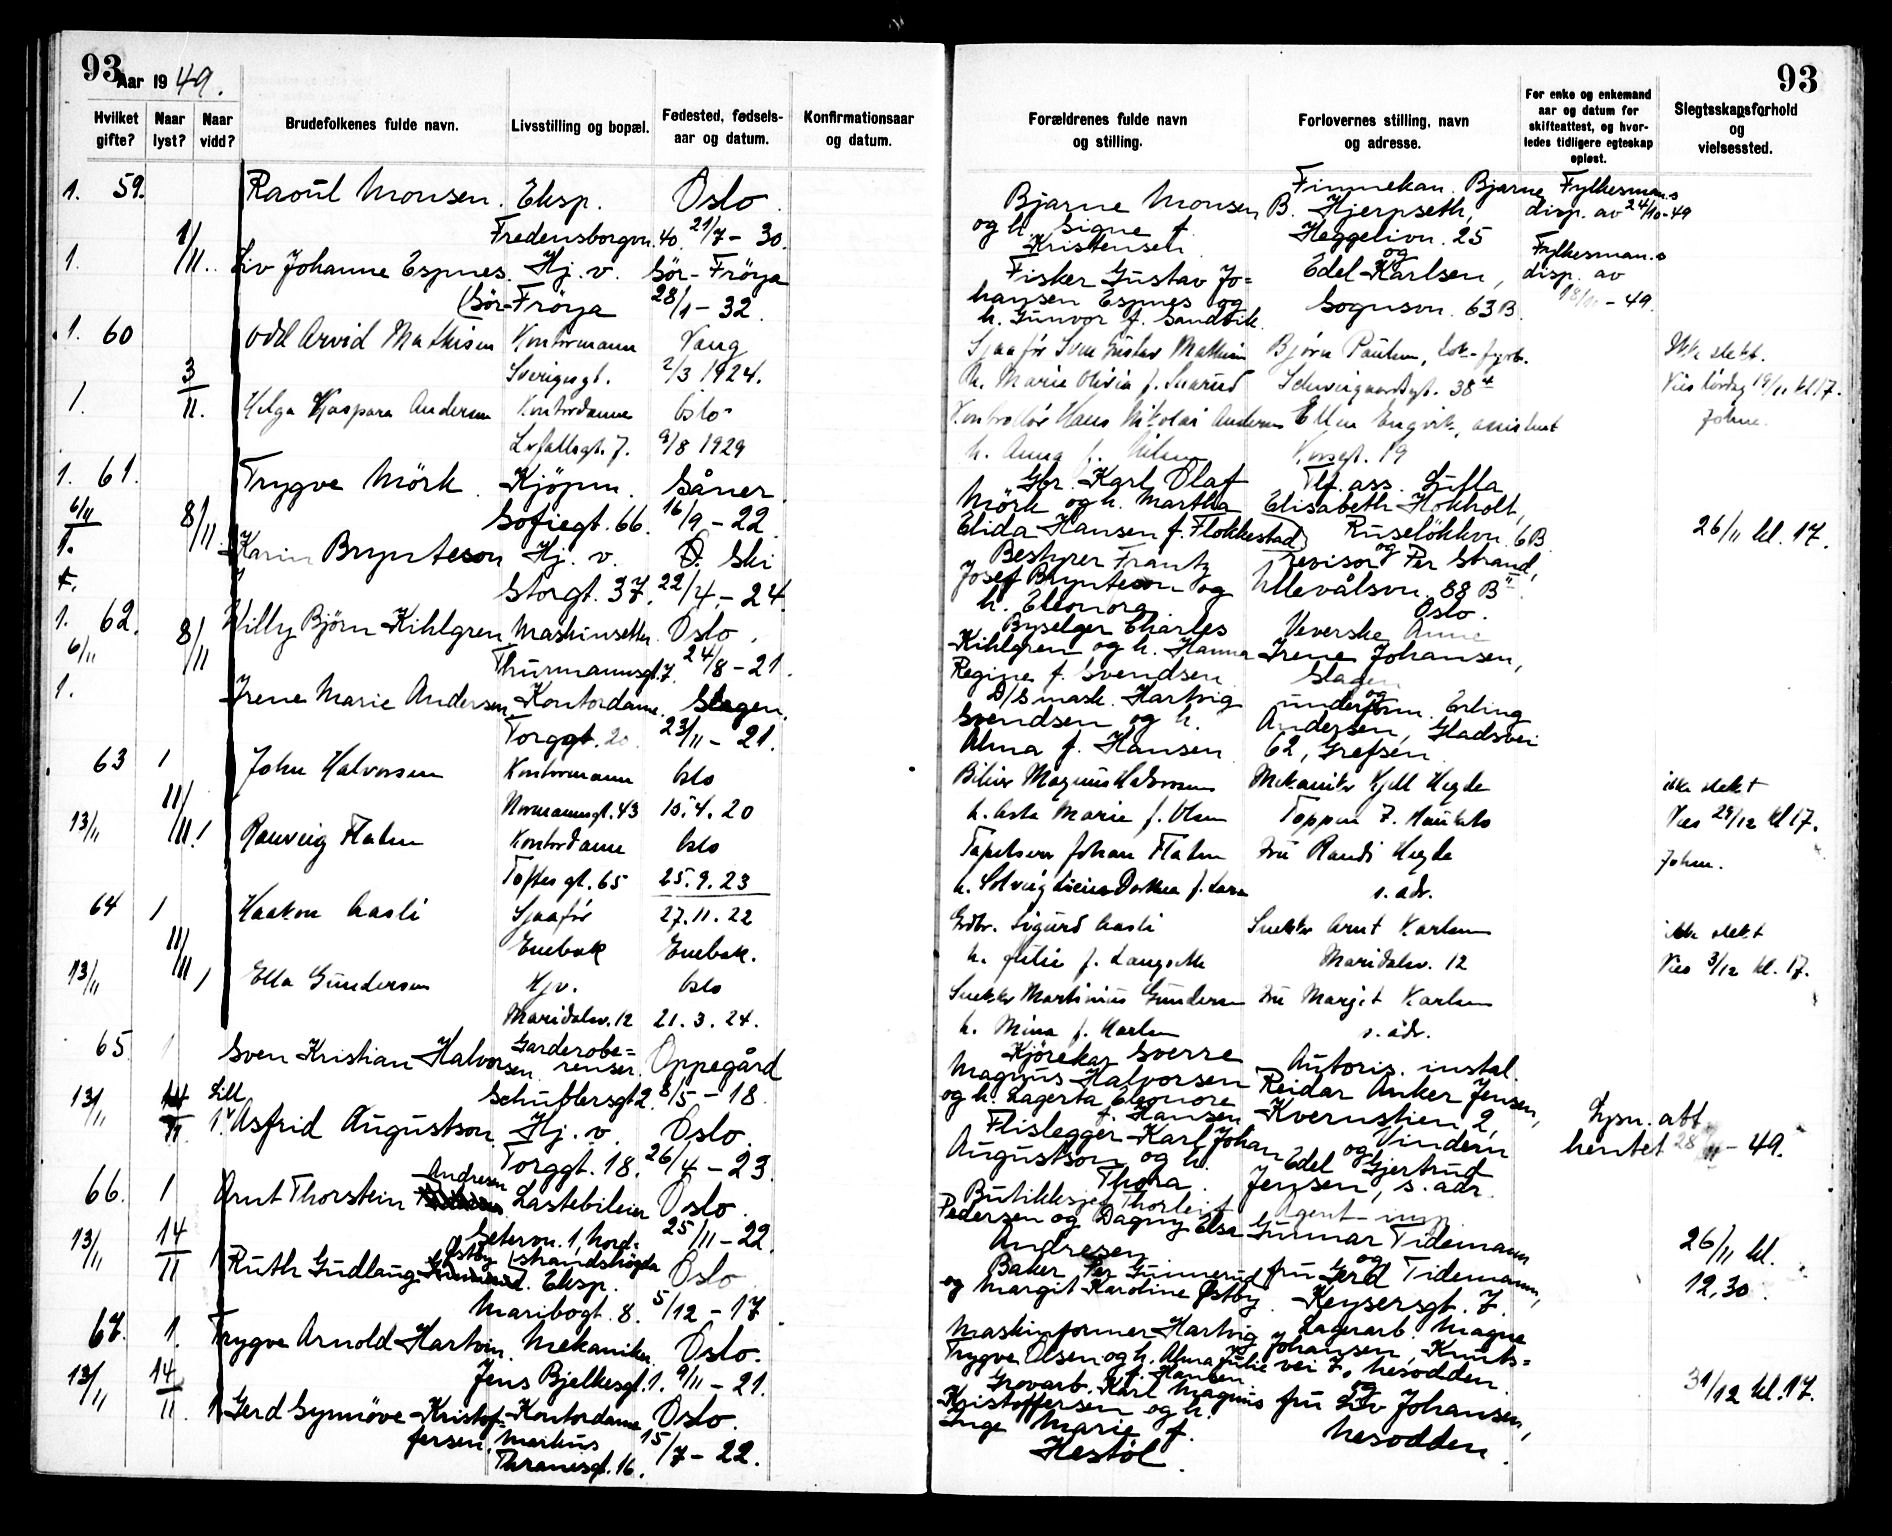 93
Aar 1949.
Hvilket gifte?
Naar lyst?
Naar vidd?
Brudefolkenes fulde navn.
Livsstilling og bopæl.
Fødested, fødsels-
aar og datum.
Konfirmationsaar
og datum.
1. 59. Raoul Monsen. Eksp. Oslo.
Fredensborgvn. 40. 21/7 - 30.
1. 1/11. Liv Johanne Espnes. Hj. v. Sör-Fröya
(Sör-Fröya 28/1 - 32.
1. 60 Odd Arvid Mathisen Kontormann Vang
3/11. Sverigesgt. 2/3 1924.
1. Helga Kaspara Andersen Kontordame Oslo
7. 9/8 1929
1. 61. Trygve Mörk. Kjöpm. Såner.
6/11 8/11 Sofiegt. 66. 16/9 - 22.
1. Karin Brynteson Hj. v. Ski
Storgt. 37. 22/4 - 24
1. 62. Willy Björn Kihlgren Maskinsetter. Oslo.
6/11 8/11 Thurmannsgt. 7. 24/8 - 21.
1. Irene Marie Andersen Kontordame. Slagen.
Torggt. 20. 23/11 - 21.
63 1 John Halvorsen Kontormann Oslo
11/11 Normannsgt. 43 15.4.20
13/11 1 Ranveig Flaten Kontordame Oslo
Toftes gt. 65 25.9.23
64 1 Haakon Aasli Sjaafør 27.11.22
11/11 Enebak Enebak.
13/11 1 Ella Gundersen Hjv. Oslo
Maridalsv. 12 21.3.24.
65. 1 Sven Kristian Halvorsen Garderobe=
renser. Oppegård
13/11 14/11 Lill Schüblersgt 2. 8/5 - 18.
1. Astfrid Augustson. Hj. v. Oslo.
Torggt. 18. 26/4 - 23.
66. 1 Arnt Thorstein Andresen Lastebileier Oslo.
13/11 14/11 Setervn. 1, Nord= 25/11 - 22.
strandshögda
1 Ruth Gudlaug Østby Eksp. Oslo
Maribogt. 8. 5/12 - 17.
67. 1. Trygve Arnold Hartvin. Mekaniker. Oslo.
13/11 14/11 Jens Bjelkesgt. 1. 9/11 - 21.
1 Gerd Synnöve Kristof= Kontordame Oslo.
fersen. Markus 15/7 - 22.
Thranesgt. 16.
93
Forældrenes fulde navn
og stilling.
Forlovernes stilling, navn
og adresse.
For enke og enkemand
aar og datum for
skifteattest, og hvor-
ledes tidligere egteskap
opløst.
Slegtsskapsforhold
og
vielsessted.
Bjarne Monsen Finnekan. Bjarne Fylkesman.s
og h. Signe f. B. Hjerpseth, disp. av 24/10-49
Kristensen Heggelivn. 25
og
Fisker Gustav Jo= Edel Karlsen, Fylkesman.s
hansen Espnes og Sognsvn. 63 B. disp. av
h. Gunvor f. Sandvik. - 49.
Sjaafør Sven Gustav Mathisen Bjørn Paulsen, lok-fyrb. Ikke slekt.
h. Marie Olivia f. Schweigaardsgt. 38 Vies lördag 19/11 kl 17.
Kontrollör Hans Nikolai Andersen Ellen Engvik, assistent Johne.
h. Anna f. Nilsen 19
Gbr. Karl Olaf Tlf. ass. Lulla
Mörk og h. Martha Elisabeth Hokholt,
Elida Hansen f. Flokkestad Ruselökkvn. 6B 26/11 kl. 17.
Bestyrer Frantz og revisor Per Strand,
Josef Brynteson og Ullevålsvn. 88 B
h. Eleonora. Oslo.
Byselger Charles Veverske Anne
Kihlgren og h. Hanna Irene Johansen,
Regine f. Svendsen. Slagen
og
D/S mask. Hartvig underform. Erling
Svendsen og h. Andersen, Gladsvei
Alma f. Hansen. 62, Grefsen.
Bileier Magnus Halvorsen Mekaniker Kjell Hegde ikke slekt
h. Asta Marie f. Olsen Toppen 7. Haukets Vies 24/12 kl 17.
Tapetserer Johan Flaten Fru Randi Hegde Johne.
h. Solveig f. s. adr.
Gdbr. Sigurd Aasli Snekker Arnt Karlsen ikke slekt
h. Julie f. Langseth Maridalsv. 12 Vies 3/12 kl. 17.
Snekker Martinius Gundersen Fru Margit Karlsen
h. Mina f. Karlsen s. adr.
Kjörekar Sverre Autoris. instal.
Magnus Halvorsen Reidar Anker Jensen,
og h. Lagerta Eleonore Kvernstien 2,
f. Hansen Vindern Lysn. att.
Flislegger Karl Johan og hentet 28/11 - 49.
Augustson og h. Edel Gjertrud
Thora. Jensen, s. adr.
Butikksjef Thorleif Agent-insp.
Pedersen og Dagny Elsa Gunnar Tidemann 26/11 kl.
Andresen. og 12,30.
Baker Per Gunnerud fru Gerd Tidemann,
og Margit Karoline Østby. Keysersgt. 7.
Maskinformer Hartvig Lagerarb. Magne
Trygve Olsen og h. Alma Julie Johansen, Knuts=
f. Hansen vei 7, Nesodden.
Grovarb. Karl Magnus og 31/12 kl. 17.
Kristoffersen og h. fru Liv Johansen,
Inge Marie f. Nesodden.
Hestöl.